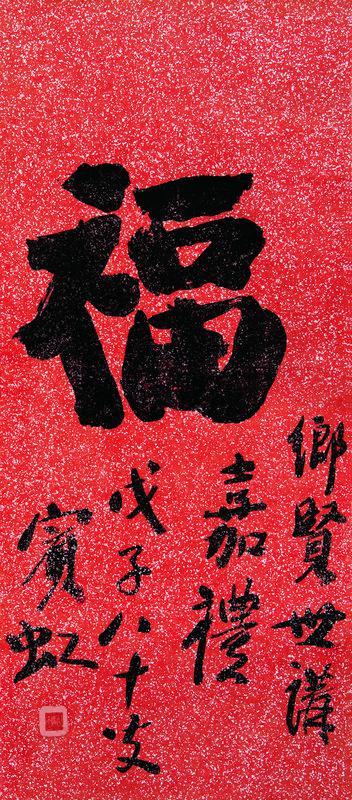 福
鄉賢世講
嘉禮
戊子八十叟
賓虹